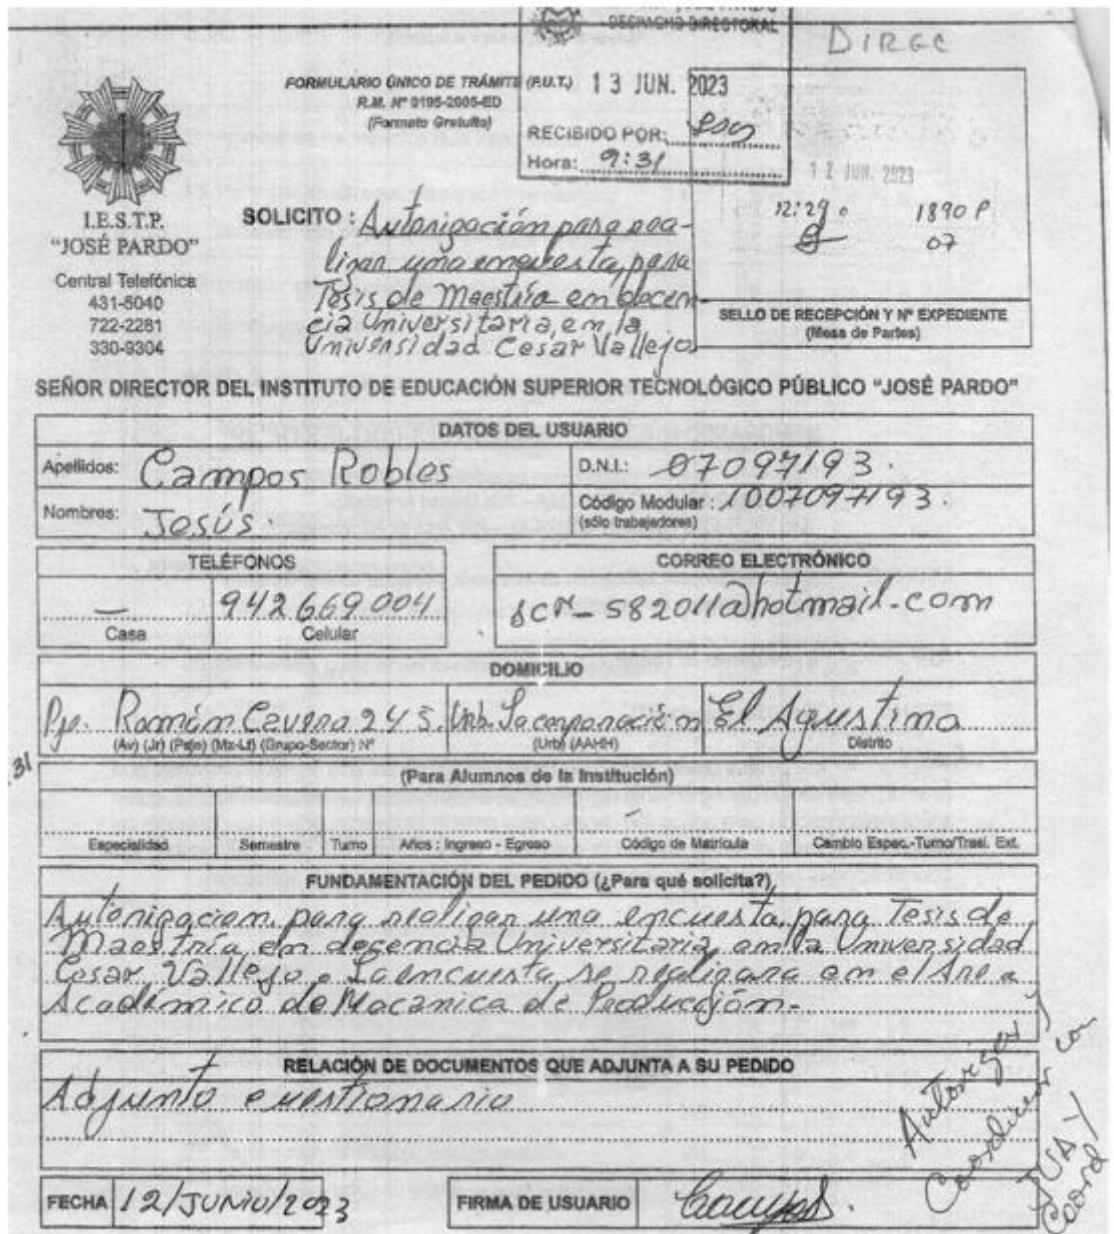 DESPACHO DIRECTORAL
DIRGC
FORMULARIO ÚNICO DE TRÁMITE (F.U.T.)
R.M. Nº 0195-2005-ED
(Formato Gratuito)
13 JUN. 2023
RECIBIDO POR:
Hora: 9:31
12 JUN. 2023
12:29
1890 P
07
SELLO DE RECEPCIÓN Y Nº EXPEDIENTE
(Mesa de Partes)
I.E.S.T.P.
"JOSÉ PARDO"
Central Telefónica
431-5040
722-2281
330-9304
SOLICITO : Autorización para rea-
lizar una encuesta, para
Tesis de Maestría en docen-
cia Universitaria, en la
Universidad Cesar Vallejo
SEÑOR DIRECTOR DEL INSTITUTO DE EDUCACIÓN SUPERIOR TECNOLÓGICO PÚBLICO "JOSÉ PARDO"
DATOS DEL USUARIO
Apellidos: Campos Robles
D.N.I.: 07097193.
Nombres: Jesús.
Código Modular : 1007097193.
(sólo trabajadores)
TELÉFONOS
CORREO ELECTRÓNICO
— 942669004
Casa Celular
scr_582011@hotmail.com
DOMICILIO
Pje. Ramón Cavero 245. Urb. La corporación El Agustino
(Av) (Jr) (Psje) (Mz-Lt) (Grupo-Sector) Nº (Urb) (AAHH) Distrito
31
(Para Alumnos de la Institución)
Especialidad Semestre Turno Años : Ingreso - Egreso Código de Matrícula Cambio Espec.-Turno/Trasl. Ext.
FUNDAMENTACIÓN DEL PEDIDO (¿Para qué solicita?)
Autorizacion, para realizar una encuesta, para Tesis de
Maestría en docencia Universitaria, en la Universidad
Cesar Vallejo. La encuesta se realizara en el Area
Académico de Mecanica de Producción.
RELACIÓN DE DOCUMENTOS QUE ADJUNTA A SU PEDIDO
Adjunto cuestionario
Autorizar y
Coordinar con
JUA y
Coord
FECHA 12/JUNIO/2023
FIRMA DE USUARIO Campos.